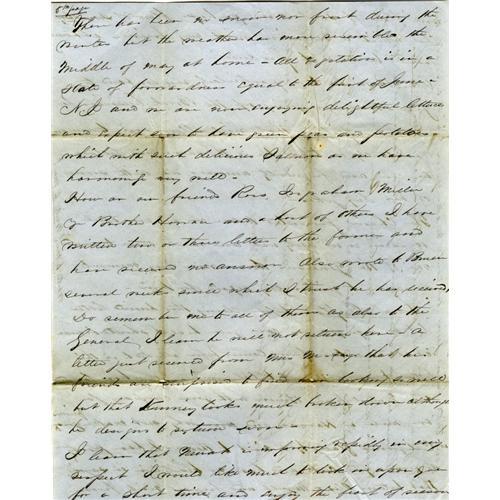 5th page
There has been no snow nor frost during the
winter but the weather has more resembled the
middle of may at home - All vegetation is in a
state of forwardness equal to the first of June -
N.J. and we are now enjoying delightful lettuce
and expect soon to have green peas and potatoes -
which with such delicious Salmon as we have
harmonize very well -
How are our friends Ross Ingraham Miller
& Brother and a host of others I have
written two or three letters to the former and
have received no answer. Also wrote to
several weeks since which I trust he has received,
Do remember me to all of them as also to the
General, I learn he will not return here. A
letter just received from Mrs says that his
friends are to find him looking so well
but that Kinney looks much broken down although
he designs to return soon -
I learn that is improving rapidly in every
respect I would like much to look in upon you
for a short time and enjoy the feast of reason